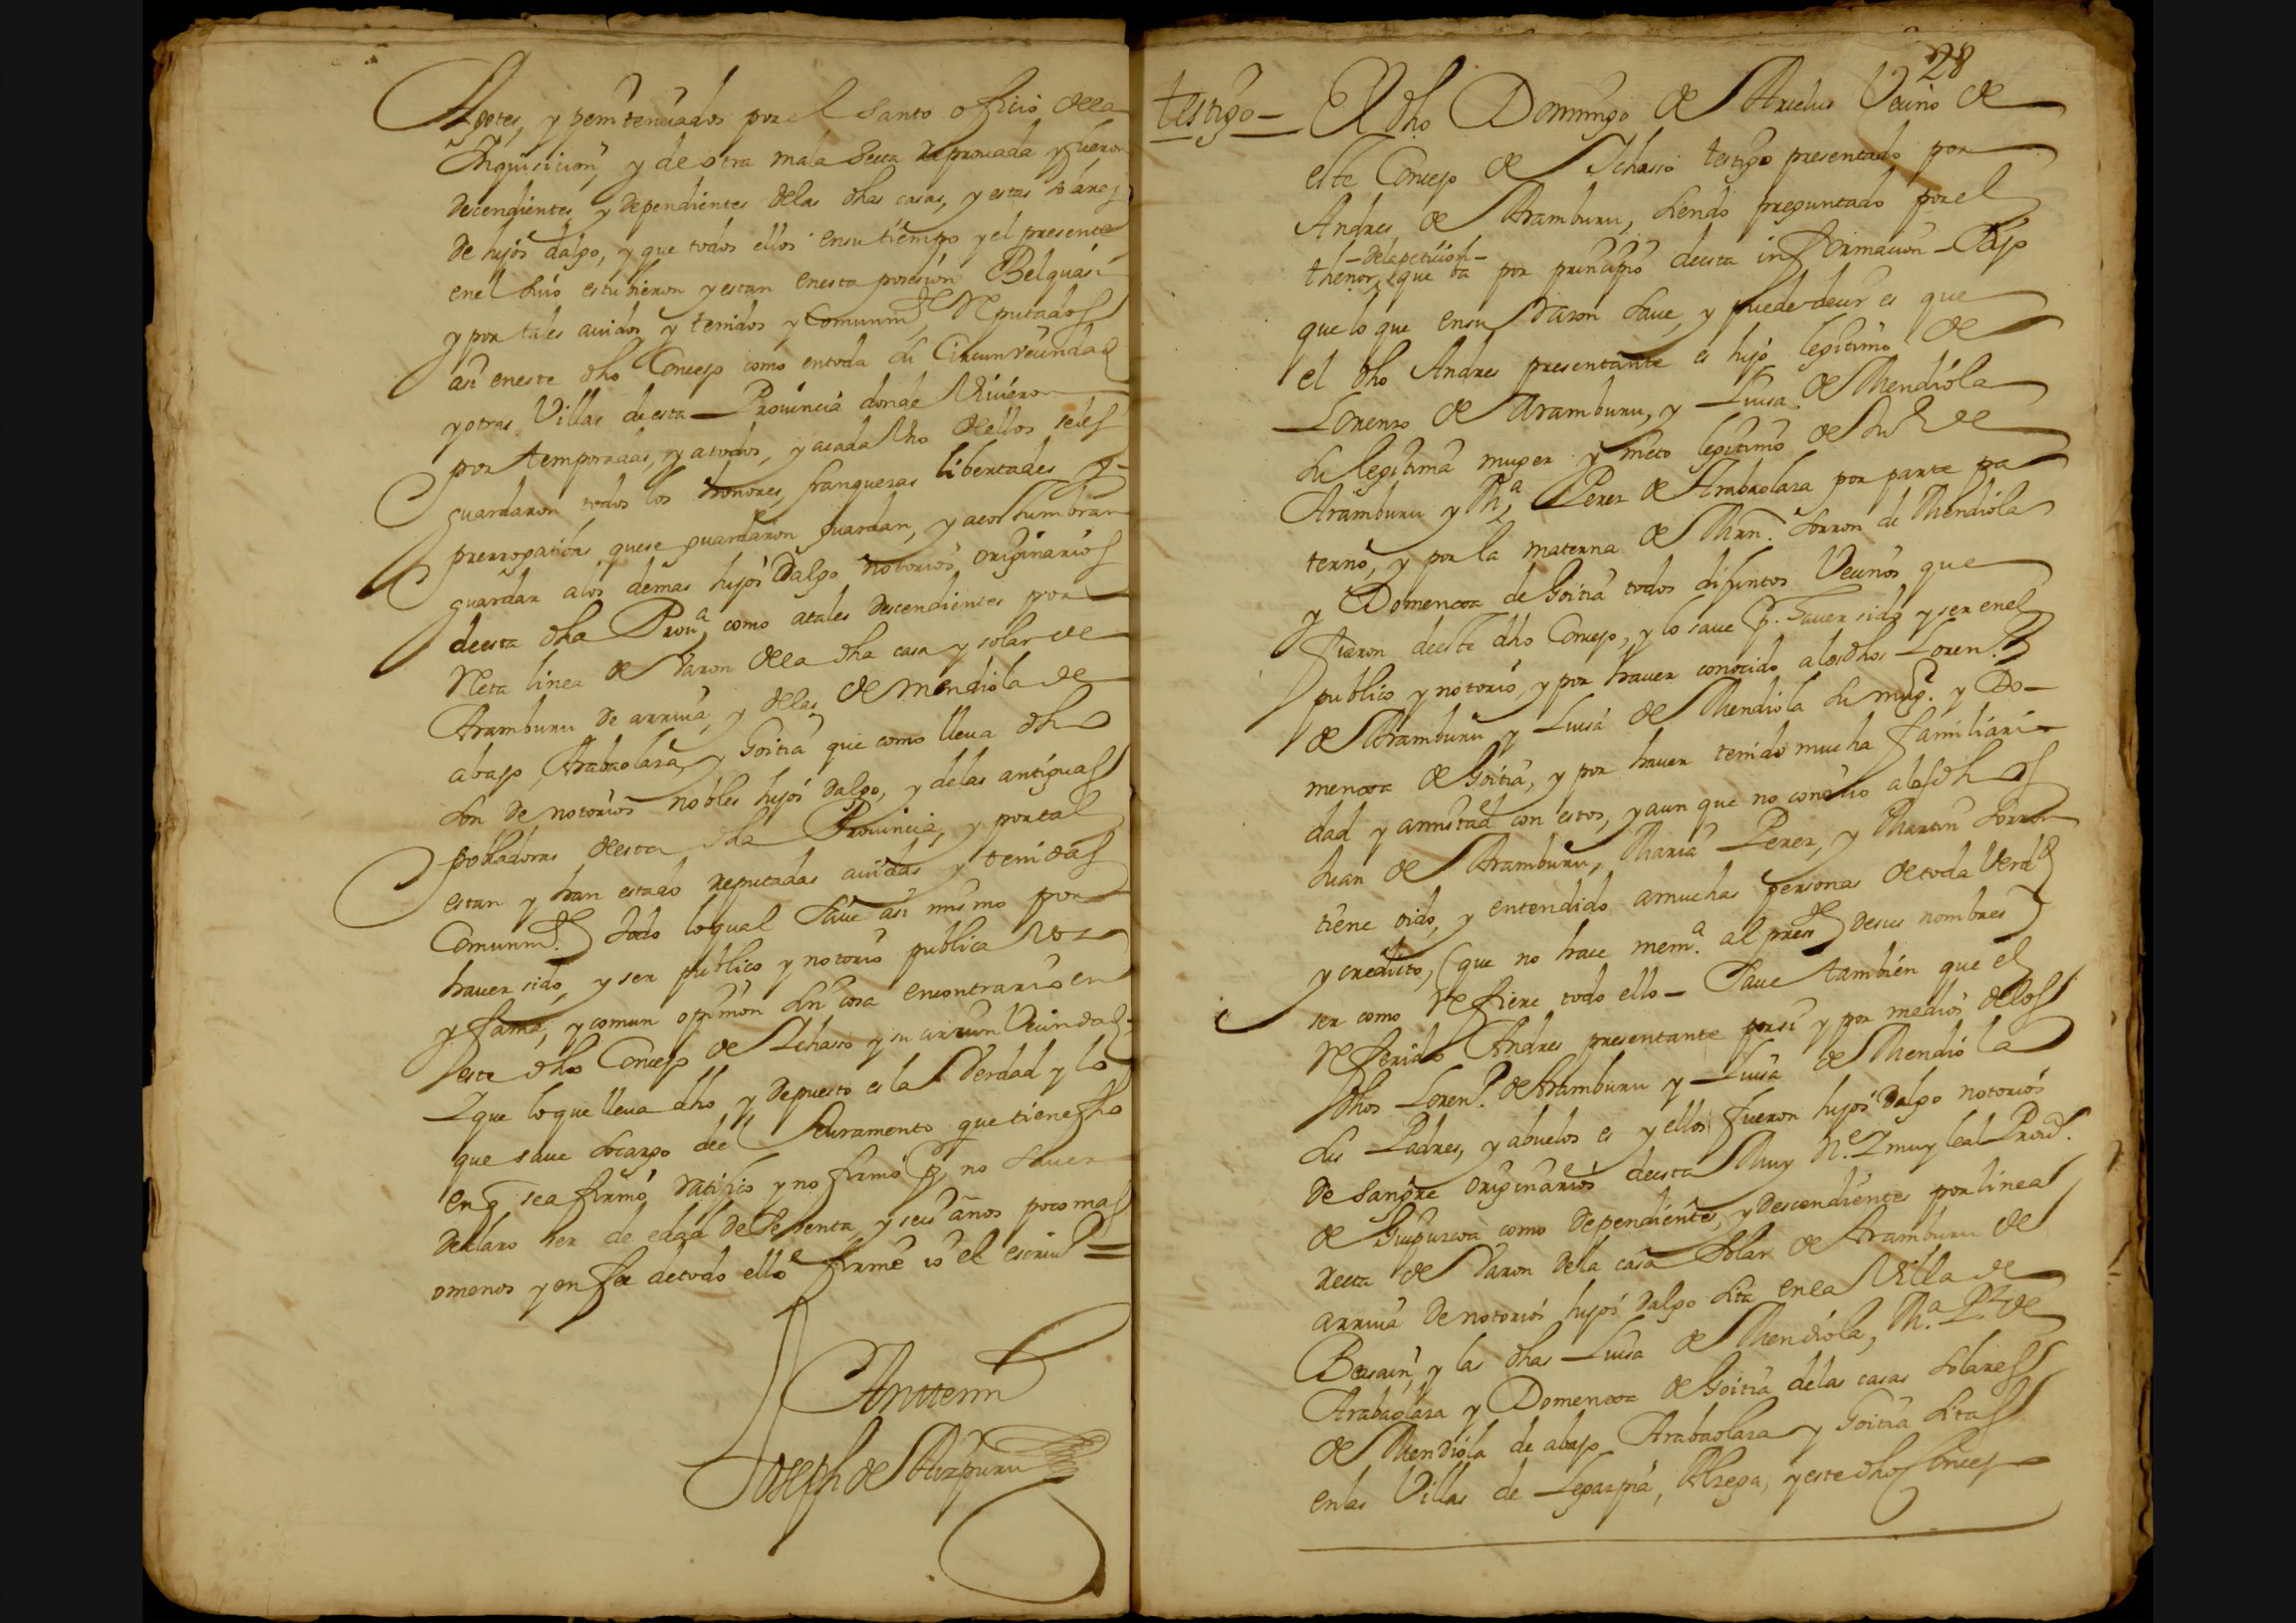 Agotes, y penitenciados por el Santo oficio de la
Inquisicion, y de otra mala Secta reprouada y fueron
descendientes y dependientes de las dhas casas, y estas solares
de hijos dalgo, y que todos ellos en su tiempo y el presente
en el suio estubieron y estan en esta posesion Belquasi
y por tales auidos y tenidos y Comunmte Reputados
asi en este dho Concejo como en toda su Circunvecindad
y otras Villas de esta Prouincia donde Viuieron
por temporadas, y a todos, y a cada Vno de ellos se les
guardaron todos los honores, franquezas libertades y
prerrogatibas que se guardaron guardan, y acostumbran
guardar a los demas hijos dalgo notorios originarios
de esta dha Prou.a como a tales descendientes por
Reta linea de Varon de la dha casa y solar de
Aramburu de arriua, y de las de Mendiola de
abajo, Arabaolaza y Goitia que como lleua dho
son de notorios nobles hijos dalgo, y de las antiguas
pobladoras de esta dha Prouincia, y por tal
estan y han estado reputadas auidas y tenidas
Comunmte. Todo lo qual Saue asi mismo por
hauer sido, y ser publico y notorio publica Voz
y fama, y comun opinion sin cosa en contrario en
este dho Concejo de Ichaso y su circunVecindad
Y que lo que lleua dho y depuesto es la Verdad y lo
que saue so cargo del Juramento que tiene fho
en q se afirmó ratificó y no firmó p. no Sauer
declaro ser de edad de Setenta y seis años poco mas
o menos y en fee de todo ello firmé io el escriuo =
Antemi
Joseph de Aizpuru
28
testigo - El dho Domingo de Vecino de
este Concejo de Ichaso testigo presentado por
Andres de Aramburu, siendo preguntado por el
- de la peticion -
thenor que ba por principio de esta informacion - Dijo
que lo que en su razon saue, y puede decir es que
el dho Andres presentante es hijo legitimo de
Lorenzo de Aramburu, y Luisa de Mendiola
su legitima muger y nieto legitimo de Ju de
Aramburu y M.a Perez de Arabaolaza por parte pa
terno, y por la materna de Mrn. Sorron de Mendiola
y Domenca de Goitia todos difuntos Vecinos que
fueron de este dho Concejo, y lo saue p. hauer sido y ser en el
publico y notorio, y por hauer conocido a los dhos Loren.zo
de Aramburu y Luisa de Mendiola su mug.r y Do-
menca de Goitia, y por hauer tenido mucha familiari-
dad y amistad con estos, y aun que no conocio a los dhos
Juan de Aramburu, Maria Perez, y Martin Sorron
tiene oido, y entendido a muchas personas de toda Verd
y credito, (que no hace mem.a al preste de sus nombres)
ser como refiere todo ello - Saue tambien que el
referido Andres presentante por si y por medios de los
dhos Loren.zo de Aramburu y Luisa de Mendiola
sus Padres, y abuelos es y ellos fueron hijos dalgo notorios
de sangre originarios de esta Muy N.e Y muy leal Prou.
de Guipuzcoa como dependientes, y descendientes por linea
recta de Varon de la casa Solar de Aramburu de
arriua de notorios hijos dalgo sita en la Villa de
Beasain, y las dhas Luisa de Mendiola, M.a P.z de
Arabaolaza y Domenca de Goitia de las casas solares
de Mendiola de abajo Arabaolaza y Goitia sitas
en las Villas de Legazpia, Alzega, y este dho Concejo